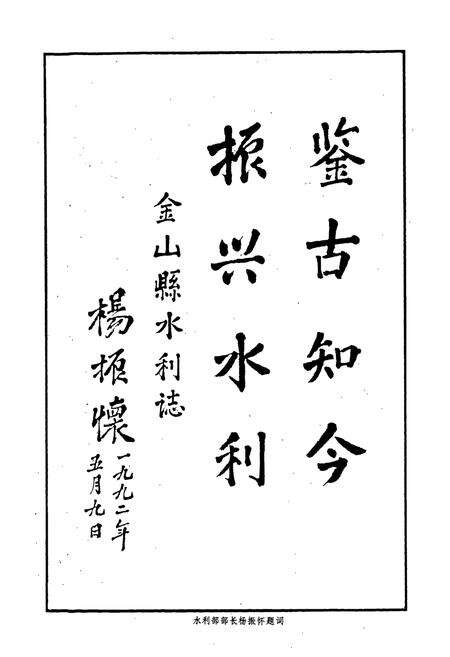 鉴古知今
振兴水利
金山縣水利誌
楊振懷
一九九二年
五月九日
水利部部长杨振怀题词